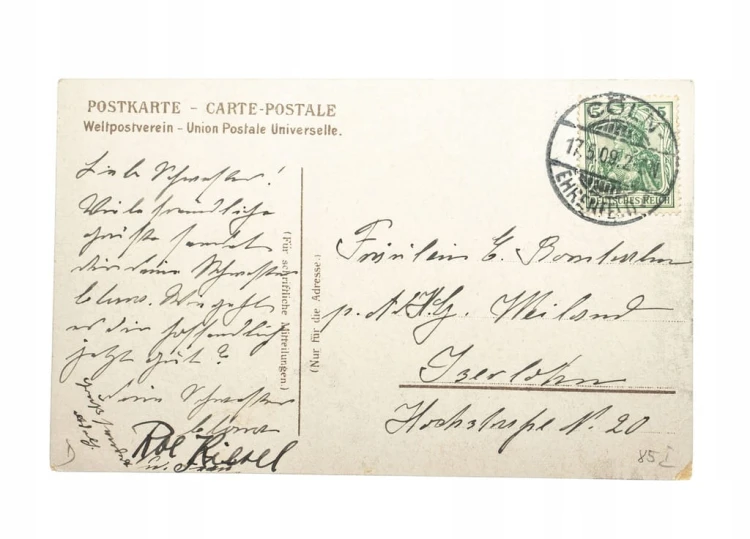 POSTKARTE - CARTE-POSTALE
Weltpostverein - Union Postale Universelle.
CÖLN-
17.5.09.2-
EHRENFELD
DEUTSCHES REICH
5
Liebe Schwester!
Viele freundliche
Grüße sendet
dir deine Schwester
Wie geht
es dir hoffentlich
jetzt gut?
deine Schwester
Gruß sendet
(Für schriftliche Mitteilungen.)
(Nur für die Adresse.)
Fräulein E.
p. Weiland
Iserlohn
Hochstraße N. 20
85 I